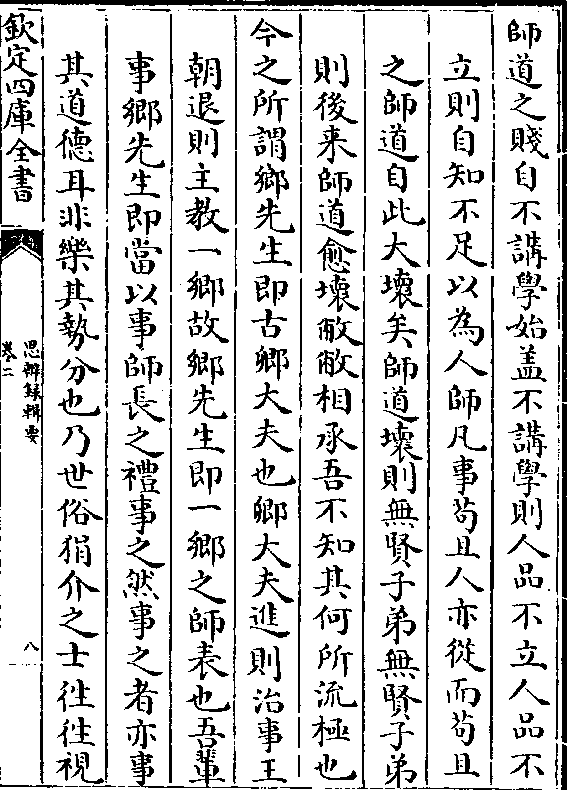 師道之賤自不講學始盖不講學則人品不立人品不
立則自知不足以為人師凡事茍且人亦從而茍且
之師道自此大壞矣師道壞則無賢子弟無賢子弟
則後来師道愈壞敝敝相承吾不知其何所流極也
今之所謂鄉先生即古卿大夫也卿大夫進則治事王
朝退則主教一鄉故鄉先生即一鄉之師表也吾輩
事鄉先生即當以事師長之禮事之然事之者亦事
其道德耳非樂其勢分也乃世俗狷介之士徃徃視
欽定四庫全書
思辨録輯要
卷二
八